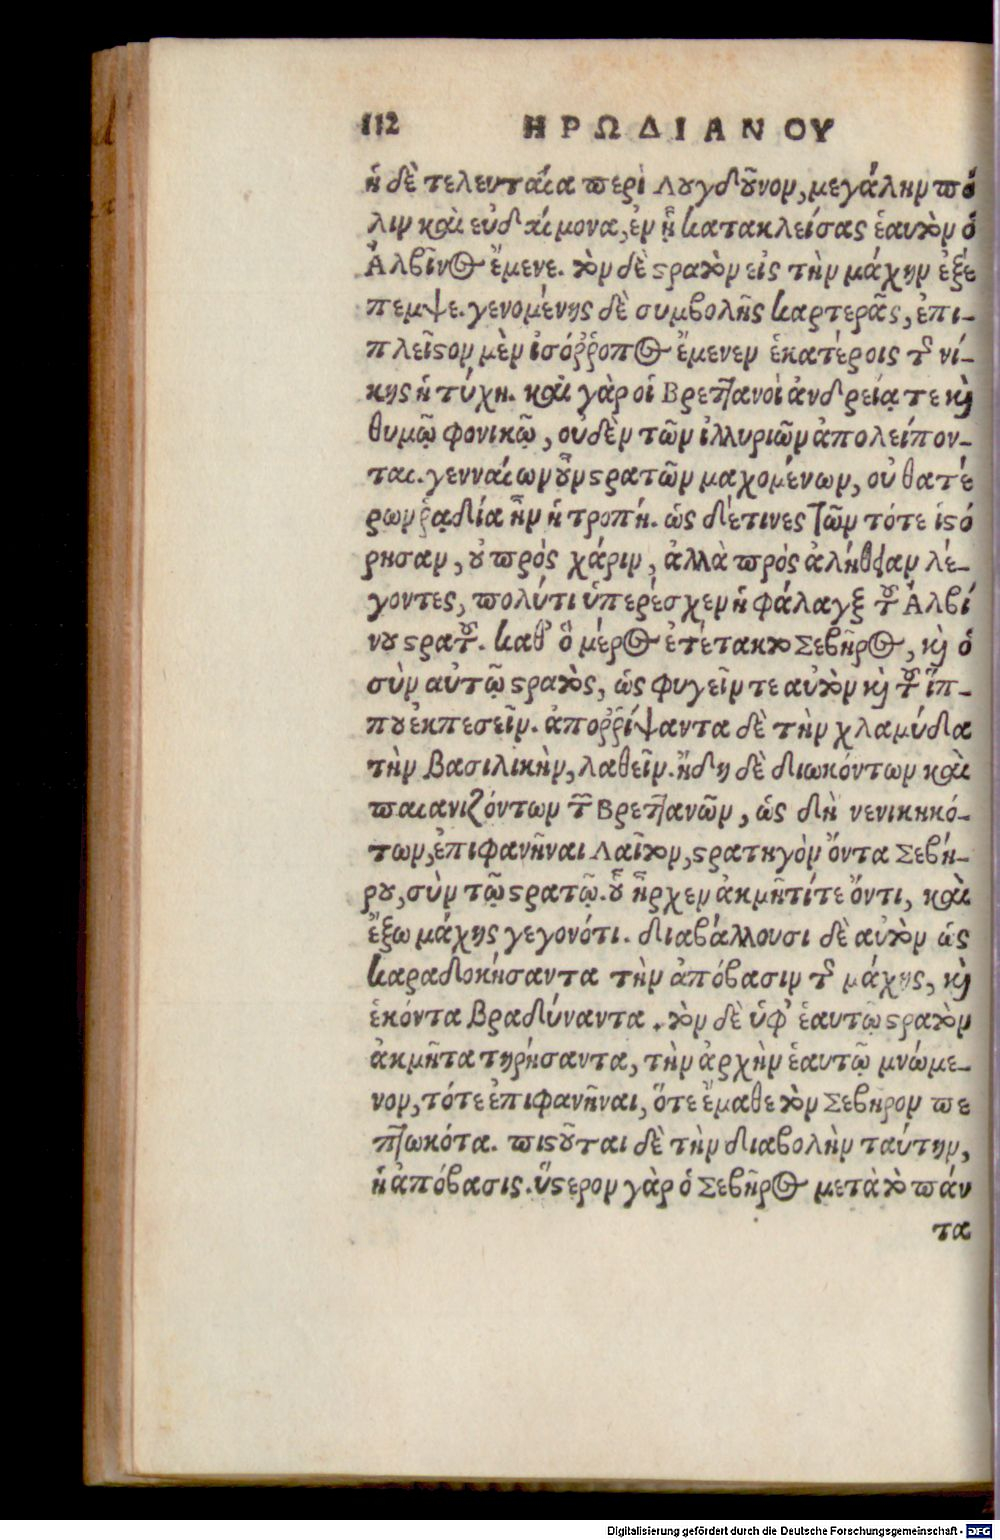 112 ΗΡΩΔΙΑΝΟΥ
ἡ δὲ τελευταία περὶ Λουγδοῦνον, μεγάλην πό
λιν καὶ εὐδαίμονα, ἐν ᾗ κατακλείσας ἑαυτὸν ὁ
Ἀλβῖνος ἔμενε. τὸν δὲ στρατὸν εἰς τὴν μάχην ἐξέ
πεμψε. γενομένης δὲ συμβολῆς καρτερᾶς, ἐπι-
πλεῖστον μὲν ἰσόῤῥοπος ἔμενεν ἑκατέροις τῆς νί-
κης ἡ τύχη. καὶ γὰρ οἱ Βρετ̓ανοὶ ἀνδρείᾳ τε καὶ
θυμῷ φονικῷ, οὐδὲν τῶν ἰλλυριῶν ἀπολείπον-
ται. γενναίων οὖν στρατῶν μαχομένων, οὐ θατέ
ρων ῥᾳδία ἦν ἡ τροπή. ὡς δέ τινες τῶν τότε ἱστό
ρησαν, οὐ πρὸς χάριν, ἀλλὰ πρὸς ἀλήθειαν λέ-
γοντες, πολύ τι ὑπερέσχεν ἡ φάλαγξ τοῦ Ἀλβί
νου στρατοῦ. καθ' ὃ μέρος ἐτέτακτο Σεβῆρος, καὶ ὁ
σὺν αὐτῷ στρατὸς, ὡς φυγεῖν τε αὐτὸν καὶ τοῦ ἵπ-
που ἐκπεσεῖν. ἀποῤῥίψαντα δὲ τὴν χλαμύδα
τὴν βασιλικὴν, λαθεῖν. ἤδη δὲ διωκόντων καὶ
παιανιζόντων τῶν Βρετ̓ανῶν, ὡς δὴ νενικηκό-
των, ἐπιφανῆναι Λαῖτον, στρατηγὸν ὄντα Σεβή-
ρου, σὺν τῷ στρατῷ. οὗ ἦρχεν ἀκμῆτί τε ὄντι, καὶ
ἔξω μάχης γεγονότι. διαβάλλουσι δὲ αὐτὸν ὡς
καραδοκήσαντα τὴν ἀπόβασιν τῆς μάχης, καὶ
ἑκόντα βραδύναντα. τὸν δὲ ὑφ' ἑαυτῷ στρατὸν
ἀκμῆτα τηρήσαντα, τὴν ἀρχὴν ἑαυτῷ μνώμε-
νον, τότε ἐπιφανῆναι, ὅτε ἔμαθε τὸν Σεβῆρον πε
πτωκότα. πιστοῦται δὲ τὴν διαβολὴν ταύτην,
ἡ ἀπόβασις. ὕστερον γὰρ ὁ Σεβῆρος μετὰ τὸ πάν
τα
Digitalisierung gefördert durch die Deutsche Forschungsgemeinschaft - DFG